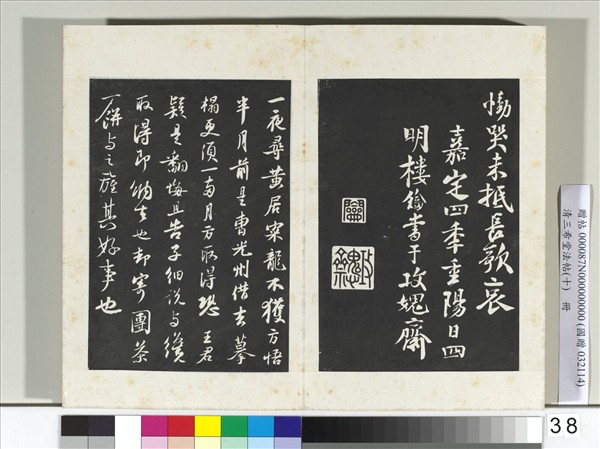 慟哭未抵長歌哀
嘉定四年重陽日四
明樓鑰書于攻媿齋
一夜尋黃居寀龍不獲方悟
半月前是曹光州借去摹
搨更須一兩月方取得恐王君
疑是翻悔且告子細說與纔
取得即納去也却寄團茶
一餅与之旌其好事也
贈帖 000087N000000000 (國贈 032114)
清三希堂法帖(十) 冊
38